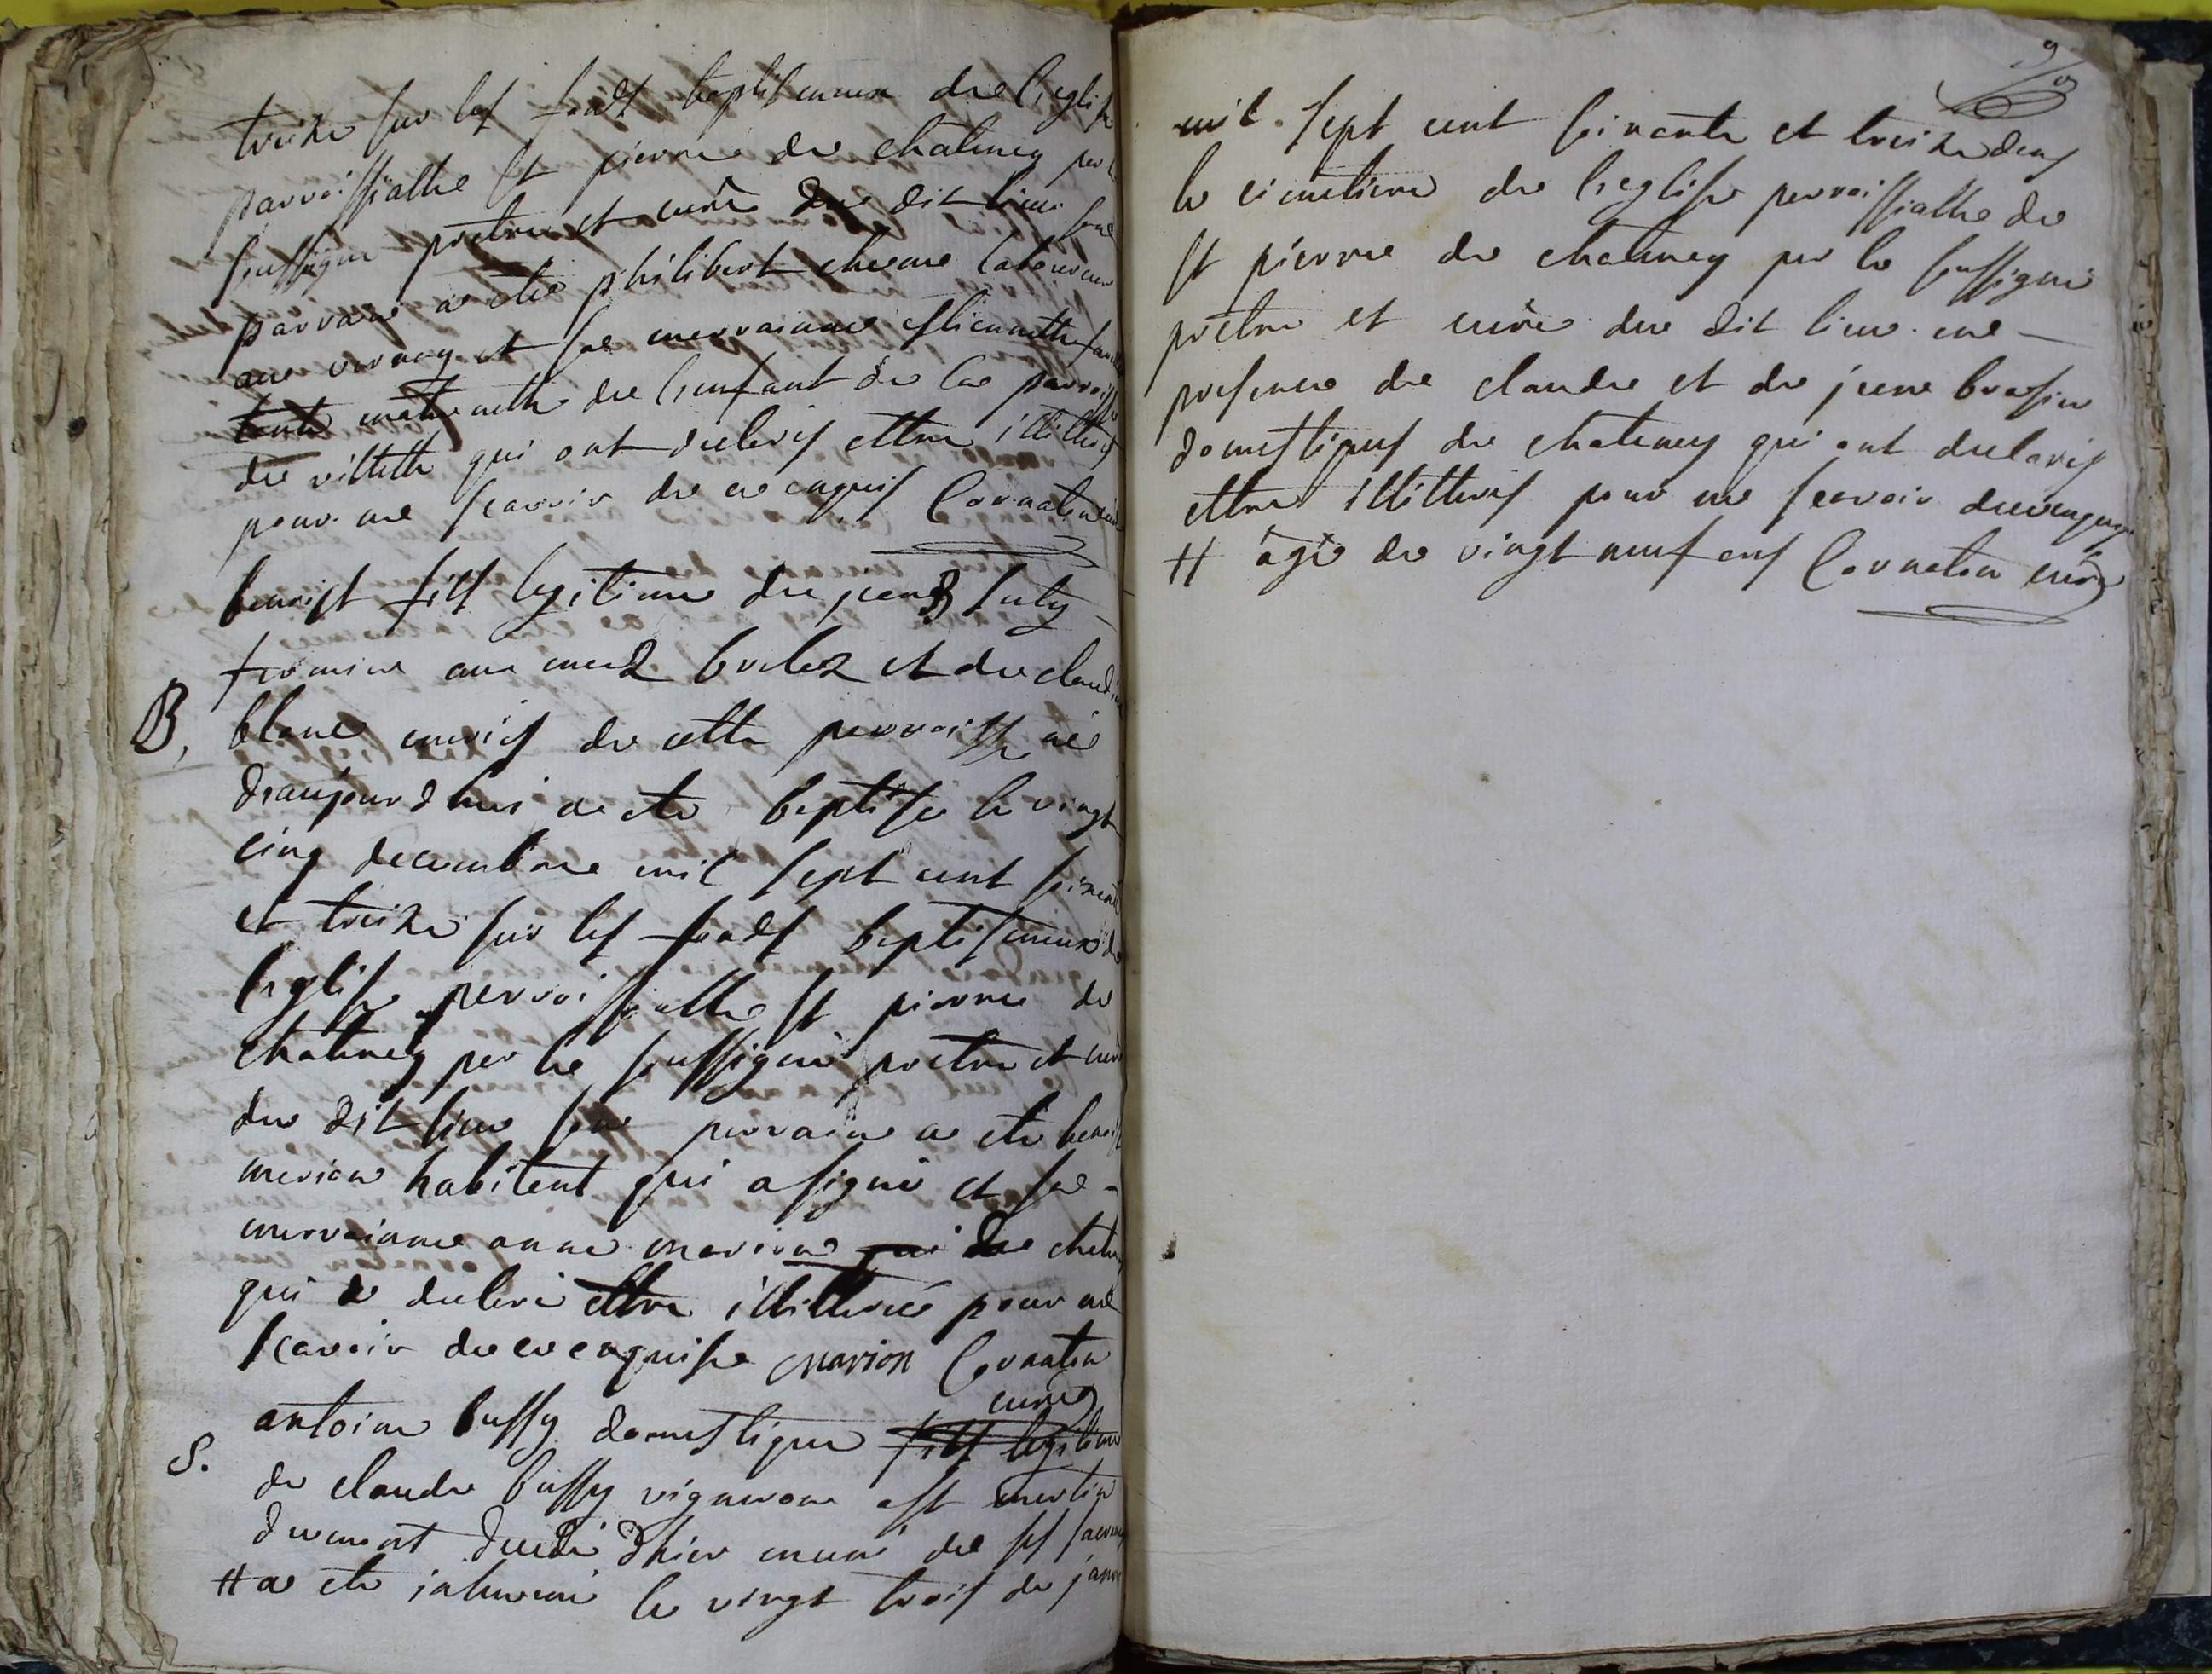 treize sur les fonds baptismaux de l'eglise
parroissialle St pierre de chatenay par le
soussigne pretre et curé du dit lieu son
parrain a ete philibert chesne laboureur
au vernay et sa marraine estiennette
de l'enfant de la parroisse
de villette qui ont declarés ettre illitterés
pour ne scavoir de ce enquis Cornaton curé
benoist fils legitime de jean suty
fermier au mas brulez et de claudine
B, blanc mariés de cette parroisse né
d'aujourdhui a ete baptisé le vingt
cinq decembre mil sept cent soixante
et treize sur les fonds baptismaux de
l'eglise parroissialle St pierre de
chatenay par le soussigné pretre et curé
du dit lieu son parrain a ete benoist
marion habitant qui a signé et sa
marrainne anne marion qui de chatenay
qui a declaré ettre illitterée pour ne
scavoir de ce enquise marion Cornaton
curé
antoine bussy domestique fils legitime
S. de claude bussy vigneron a St martin
du mont decedé d'hier muni de ses sacrements
# a ete inhumé le vingt trois de janvier
9/
mil sept cent soixante et treize dans
le cimetiere de l'eglise parroissialle de
St pierre de chatenay par le soussigné
pretre et curé du dit lieu en
presence de claude et de jean brasier
domestiques de chatenay qui ont declarés
ettre illitterés pour ne scavoir de ce enquis
# agé de vingt neuf ans Cornaton curé